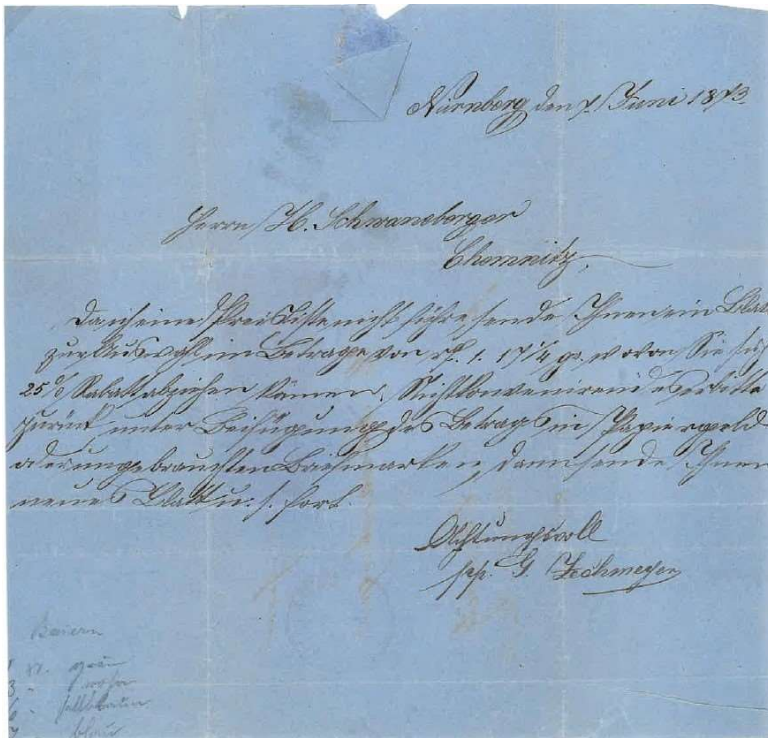 Nürnberg den 7. Juni 1873.
Herrn H. Schwaneberger
Chemnitz,
Da ich eine Preisliste nicht führe, sende Ihnen ein Blatt
zur Auswahl im Betrage von rℓ. 1. 17 1/4 gr. wovon Sie sich
25% Rabatt abziehen können. Nichtconvenirendes erbitte
zurück unter Beifügung des Betrags in Papiergeld
oder ungebrauchten Briefmarken, dann sende Ihnen
neues Blatt u. s. fort.
Achtungsvoll
pp. G. Zechmeyer
Baiern
1 Kr. grün
3 "
6 "
7 " blau